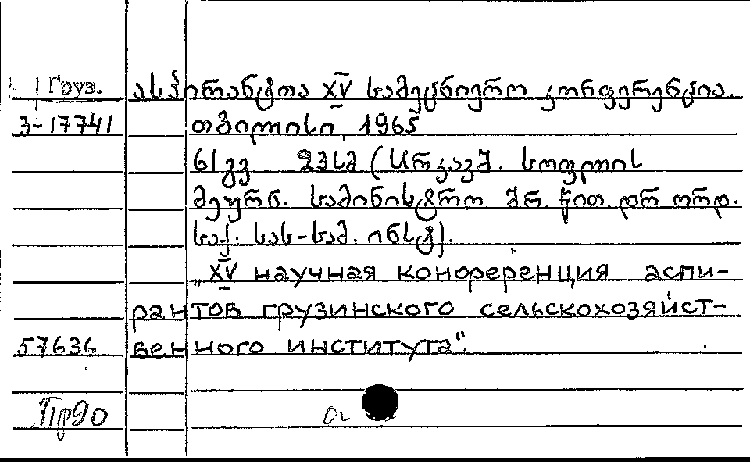 Груз. ასპირანტთა XV სამეცნიერო კონფერენცია.
3-17741 თბილისი, 1965
61 გვ 23სმ (სსრკავშ. სოფლის
მეურნ. სამინისტრო შრ. წით. დრ. ორდ.
საქ. სას-სამ. ინსტ).
„XV научная конференция аспи-
рантов грузинского сельскохозяйст-
57636 венного института".
Пр90